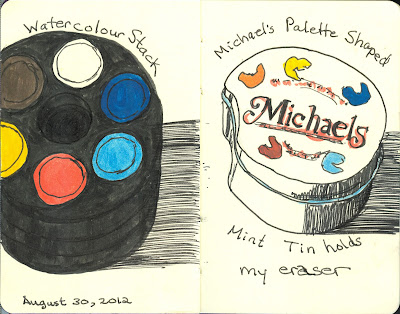 Watercolour Stack
August 30, 2012
Michael's Palette Shaped
Michaels
Mint Tin holds
my eraser